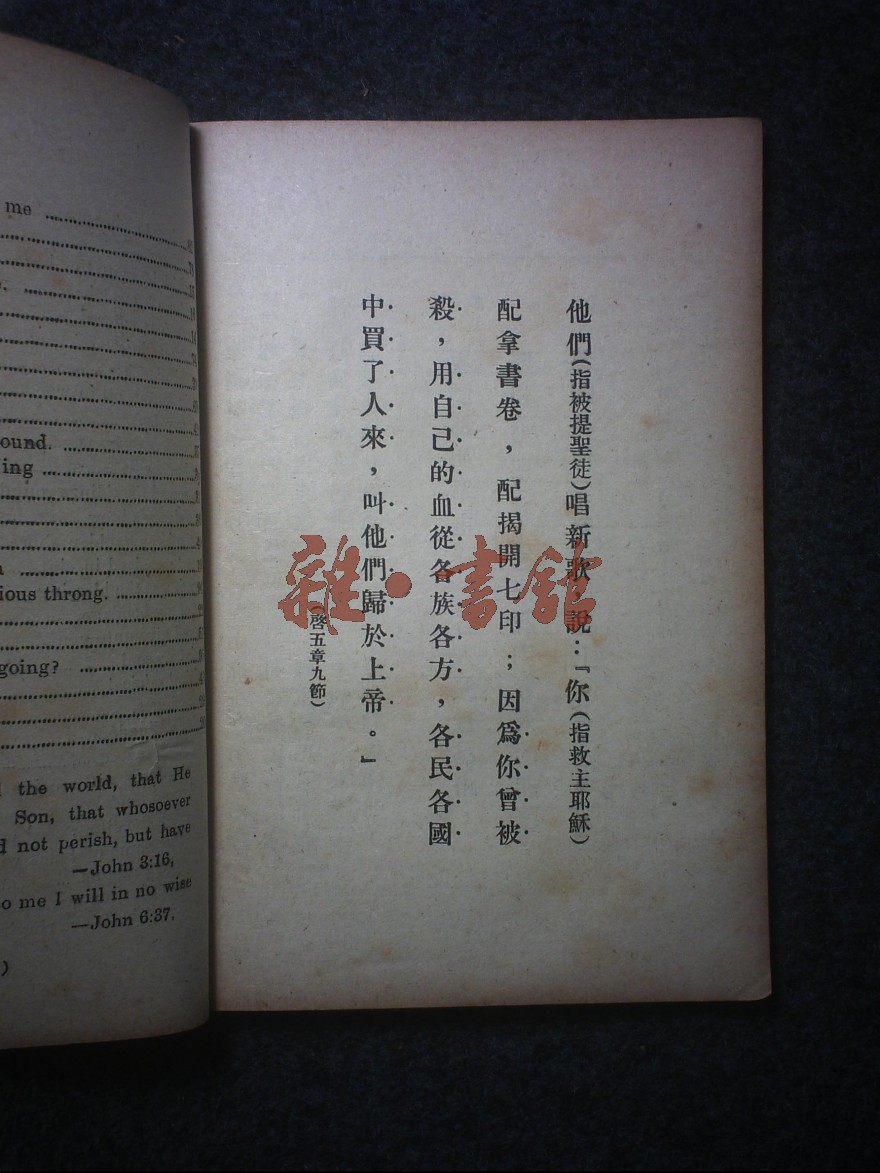 me
ound.
ing
ious throng.
going?
the world, that He
Son, that whosoever
not perish, but have
—John 3:16,
o me I will in no wise
—John 6:37.
)
他們(指被提聖徒)唱新歌，說：『你(指救主耶穌)
配拿書卷，配揭開七印；因爲你曾被
殺，用自己的血從各族各方，各民各國
中買了人來，叫他們歸於上帝。』
(啓五章九節)
雜·書館